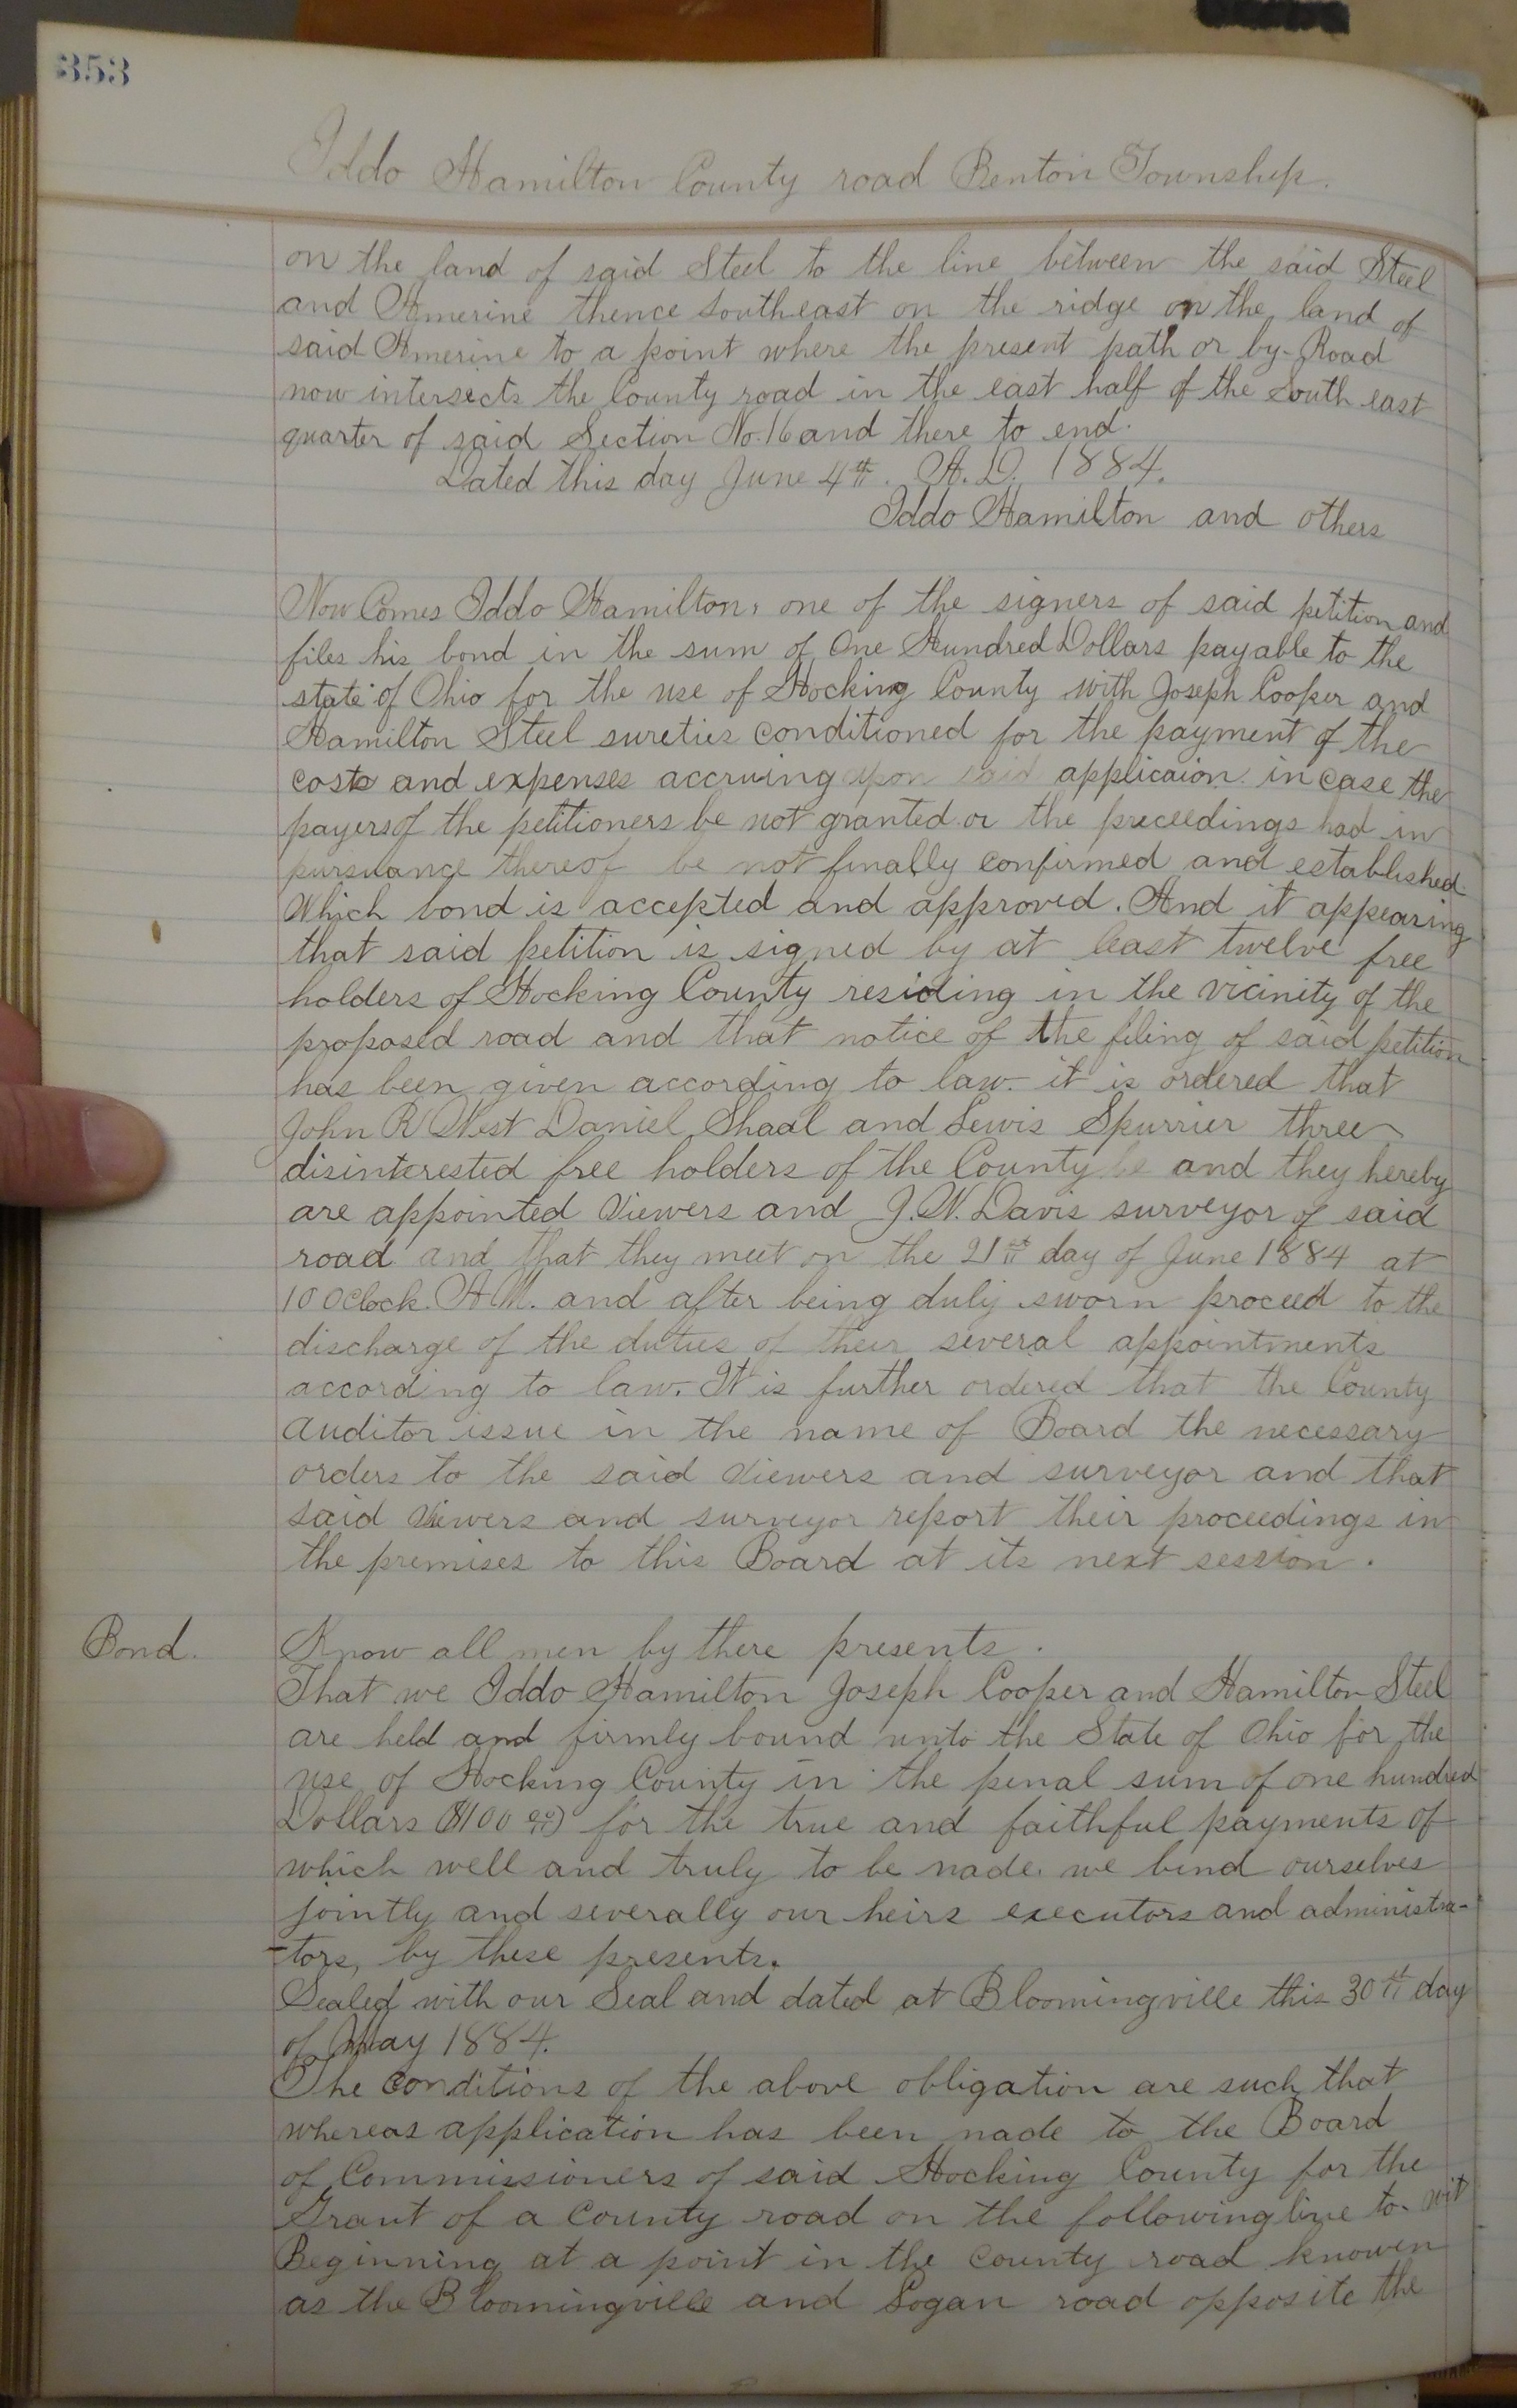 353
Iddo Hamilton County road Benton Township.
on the land of said Steel to the line between the said Steel
and Amerine thence southeast on the ridge on the land of
said Amerine to a point where the present path or by-Road
now intersects the County road in the east half of the South east
quarter of said Section No. 16 and there to end.
Dated this day June 4th. A.D. 1884.
Iddo Hamilton and others
Now Comes Iddo Hamilton, one of the signers of said petition and
files his bond in the sum of One Hundred Dollars payable to the
state of Ohio for the use of Hocking County with Joseph Cooper and
Hamilton Steel sureties conditioned for the payment of the
costs and expenses accruing upon said applicaion in case the
payers of the petitioners be not granted or the preceedings had in
pursuance thereof be not finally confirmed and established.
Which bond is accepted and approved. And it appearing
that said petition is signed by at least twelve free
holders of Hocking County residing in the vicinity of the
proposed road and that notice of the filing of said petition
has been given according to law. it is ordered that
John R West Daniel Shaal and Lewis Spurrier three
disinterested free holders of the County be and they hereby
are appointed Viewers and J. W. Davis surveyor of said
road and that they meet on the 21st day of June 1884 at
10 OClock. A.M. and after being duly sworn proceed to the
discharge of the duties of their several appointments
according to law. It is further ordered that the County
Auditor issue in the name of Board the necessary
orders to the said Viewers and surveyor and that
said Viewers and surveyor report their proceedings in
the premises to this Board at its next session.
Bond.
Know all men by there presents.
That we Iddo Hamilton Joseph Cooper and Hamilton Steel
are held and firmly bound unto the State of Ohio for the
use of Hocking County in the penal sum of one hundred
Dollars ($100 00) for the true and faithful payments of
which well and truly to be nade. we bind ourselves
jointly and severally our heirs executors and administra-
-tors, by these presents.
Sealed with our Seal and dated at Bloomingville this 30th day
of May 1884.
The conditions of the above obligation are such that
whereas application has been nade to the Board
of Commissioners of said Hocking County for the
Grant of a County road on the following line to-wit
Beginning at a point in the County road knowen
as the Bloomingville and Logan road opposite the